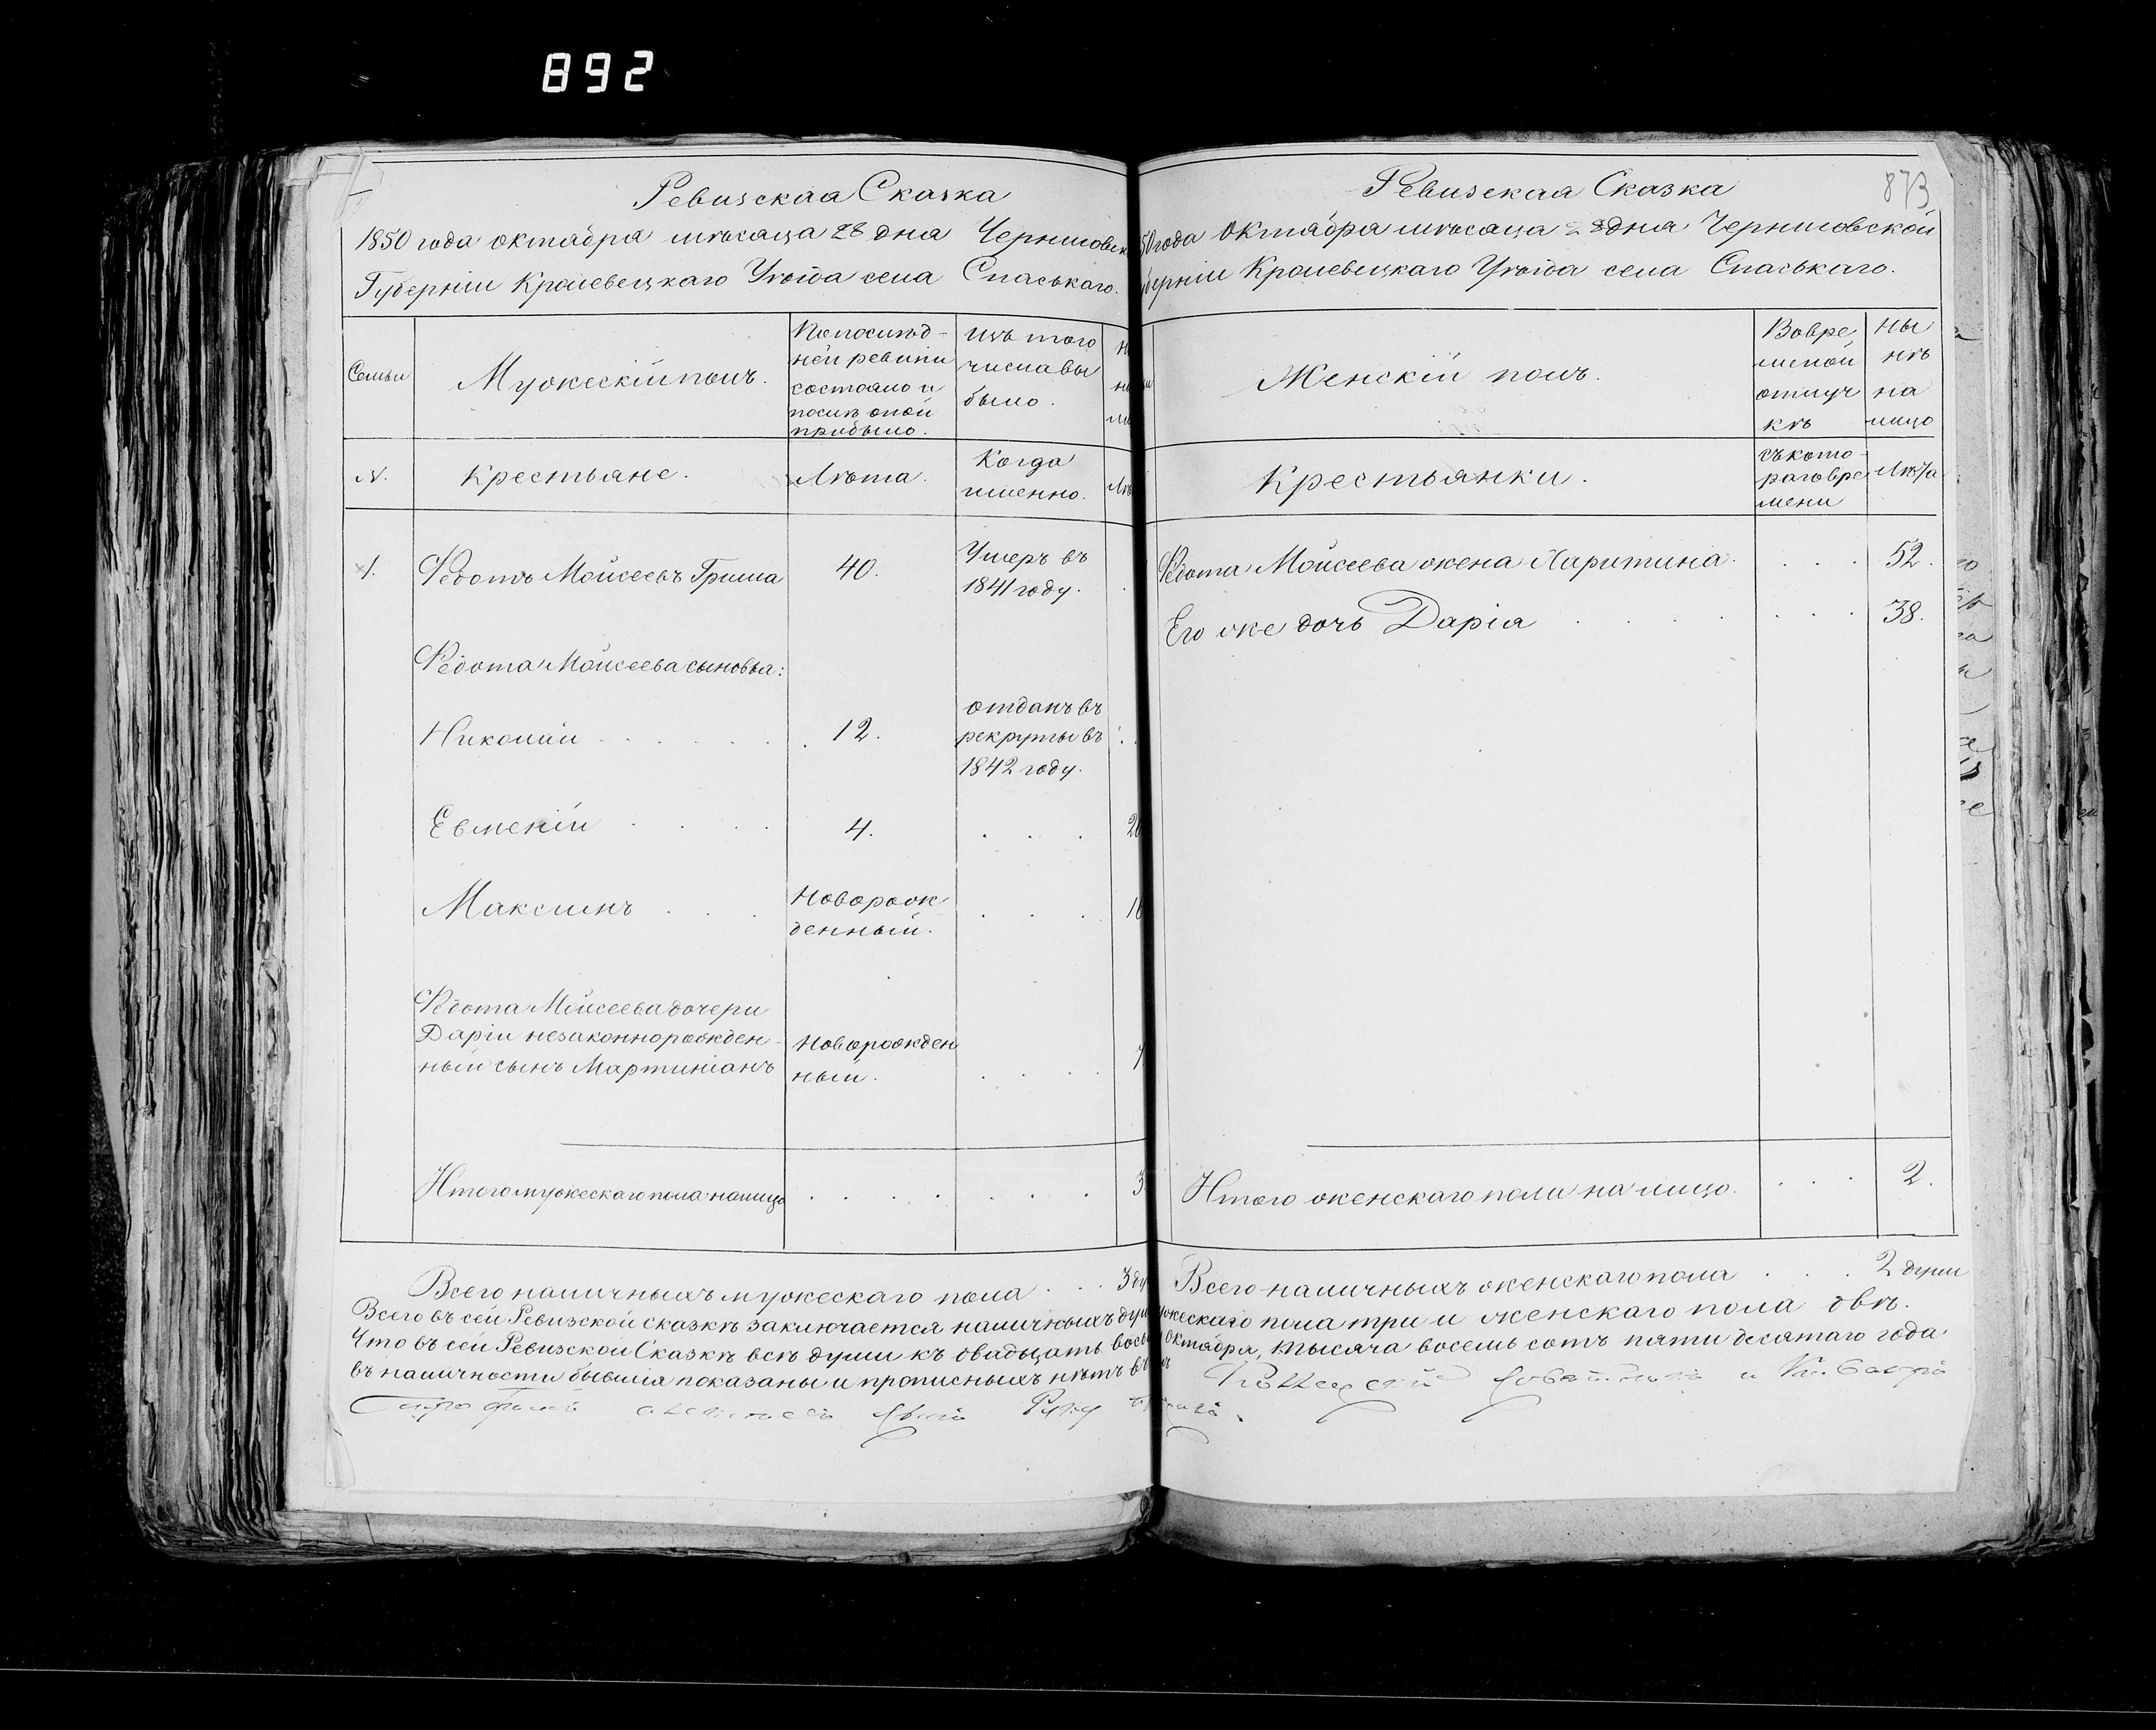 892
Ревизская Сказка
1850 года октября мѣсяца 28 дня Черниговск
Губерніи Кролевецкаго Уѣзда села Спаськаго.
Семьи
Мужескій полъ.
По послѣд-
ней ревизіи
состояло и
послѣ оной
прибыло.
Изъ того
числа вы
было.
Н
на
ли
№.
Крестьяне.
Лѣта.
Когда
именно.
Лѣ
1.
Ѳедотъ Мойсеевъ Гриша
40.
Умеръ въ
1841 году.
Ѳедота Мойсеева сыновья:
Николай
12.
отданъ въ
рекруты въ
1842 году.
Евменій
4.
20
Максимъ
Новорож
денный.
16
Ѳедота Мойсеева дочери
Даріи незаконнорожден-
ный сынъ Мартиніанъ
Новорожден
ный.
7
Итого мужескаго пола налицо
3
Всего наличныхъ мужескаго пола 3 ду
Всего въ сей Ревизской сказкѣ заключается наличныхъ душ
Что въ сей Ревизской Сказкѣ всѣ души къ двадцать вось
въ наличности бывшія показаны и прописныхъ нѣтъ въ
873
Ревизская Сказка
50 года Октября мѣсяца 28 дня Черниговской
берніи Кролевецкаго Уѣзда села Спаськаго.
Женскій полъ.
Вовре
менной
отлуч
кѣ
Ны
нѣ
на
лицо
Крестьянки.
съ кото-
раго вре
мени
Лѣта
Ѳедота Мойсеева жена Харитина
52.
Его же дочь Дарія
38.
Итого женскаго пола на лицо.
2.
Всего наличныхъ женскаго пола 2 души
ужескаго пола три и женскаго пола двѣ.
Октября, тысяча восемь сотъ пяти десятаго года